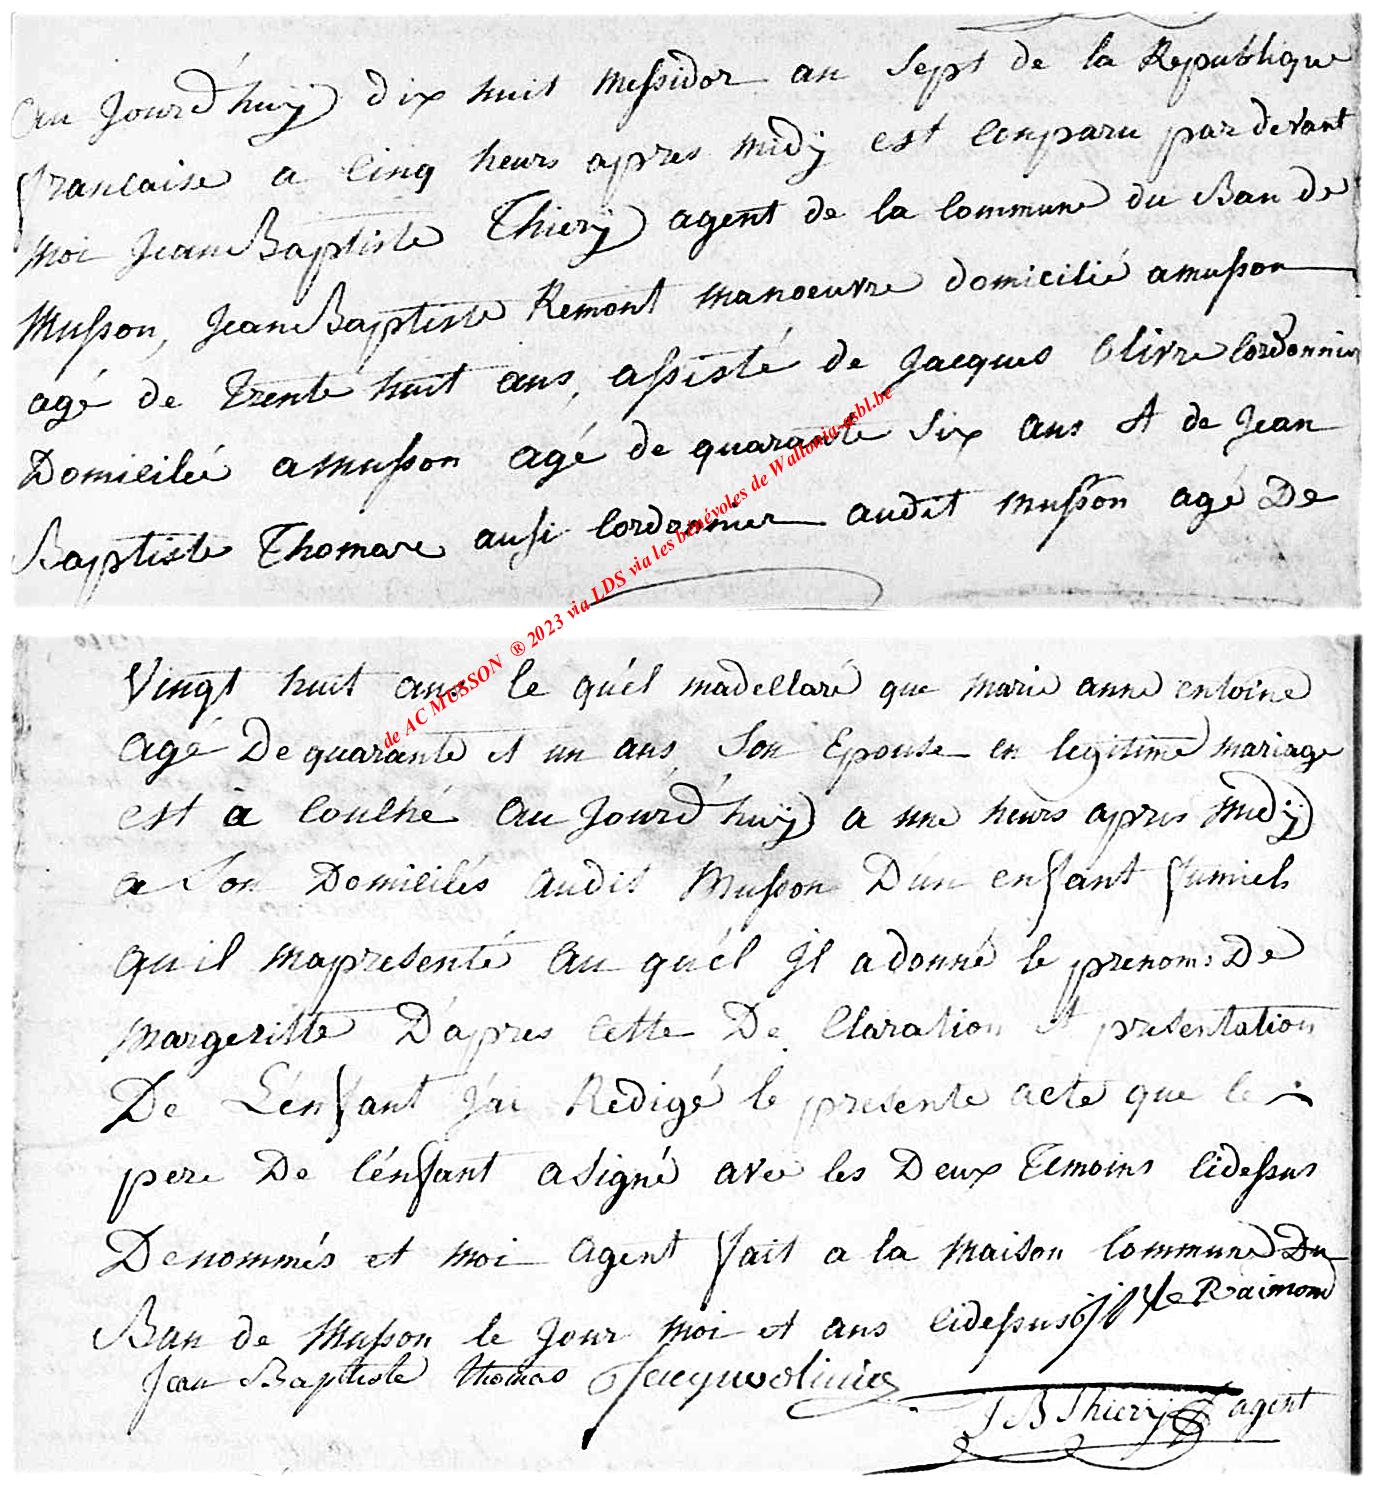 au Jourd'huÿ dix huit Messidor an Sept de la Republique
francaise a cinq heurs apres midÿ est conparu pardevant
moi Jean Baptiste Thierÿ agent de la commune du Ban de
Musson, Jean Baptiste Remont manoeuvre domicilié amusson
agé de trente huit ans, assisté de Jacques Olivre cordonnier
Domicilié amusson agé de quarante six ans et de Jean
Baptiste Thomase aussi cordonnier audit musson agé De
de AC MUSSON ® 2023 via LDS via les bénévoles de Wallonia-asbl.be
Vingt huit ans le qu'el madeclaré que marie anne entoine
agé De quarante et un ans, Son Epouse en legitime mariage
est à couché au Jourd'huÿ a une heurs apres Midÿ
a Son Domicilés audit Musson D'un enfant fumiels
qu il mapresenté au qu'el Jl adonné le prenoms De
margeritte D'apres cette De claration et presentation
De L'enfant J'ai Redigé le presente acte que le
pere De l'enfant asigné avec les Deux Temoins cidessus
Denommés et moi agent fait a la Maison commune Du
Ban de Musson le Jour moi et ans cidessus Raimond
Jean Baptiste thomas Jacques olivie
J B Thierÿ agent